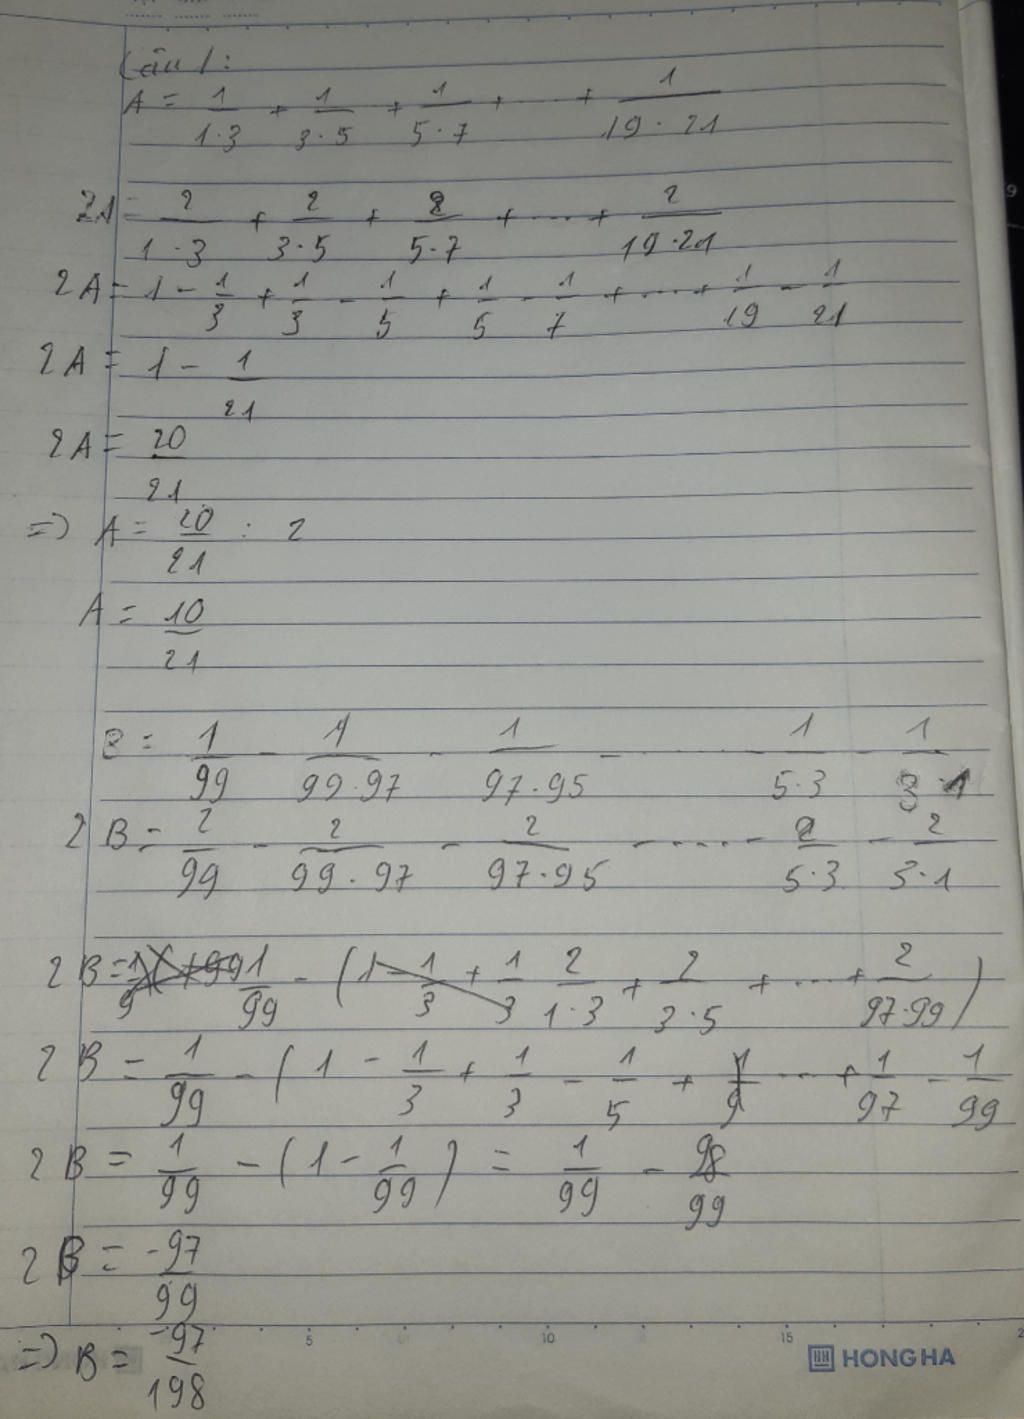 Câu 1:
A = 1/(1·3) + 1/(3·5) + 1/(5·7) + ... + 1/(19·21)
2A = 2/(1·3) + 2/(3·5) + 2/(5·7) + ... + 2/(19·21)
2A = 1 - 1/3 + 1/3 - 1/5 + 1/5 - 1/7 + ... + 1/19 - 1/21
2A = 1 - 1/21
2A = 20/21
=> A = 20/21 : 2
A = 10/21
B = 1/99 - 1/(99·97) - 1/(97·95) - ... - 1/(5·3) - 1/(3·1)
2B = 2/99 - 2/(99·97) - 2/(97·95) - ... - 2/(5·3) - 2/(3·1)
2B = 1/99 - (2/(1·3) + 2/(3·5) + ... + 2/(97·99))
2B = 1/99 - (1 - 1/3 + 1/3 - 1/5 + ... + 1/97 - 1/99
2B = 1/99 - (1 - 1/99) = 1/99 - 98/99
2B = -97/99
=> B = -97/198
5 10 15
HONG HA